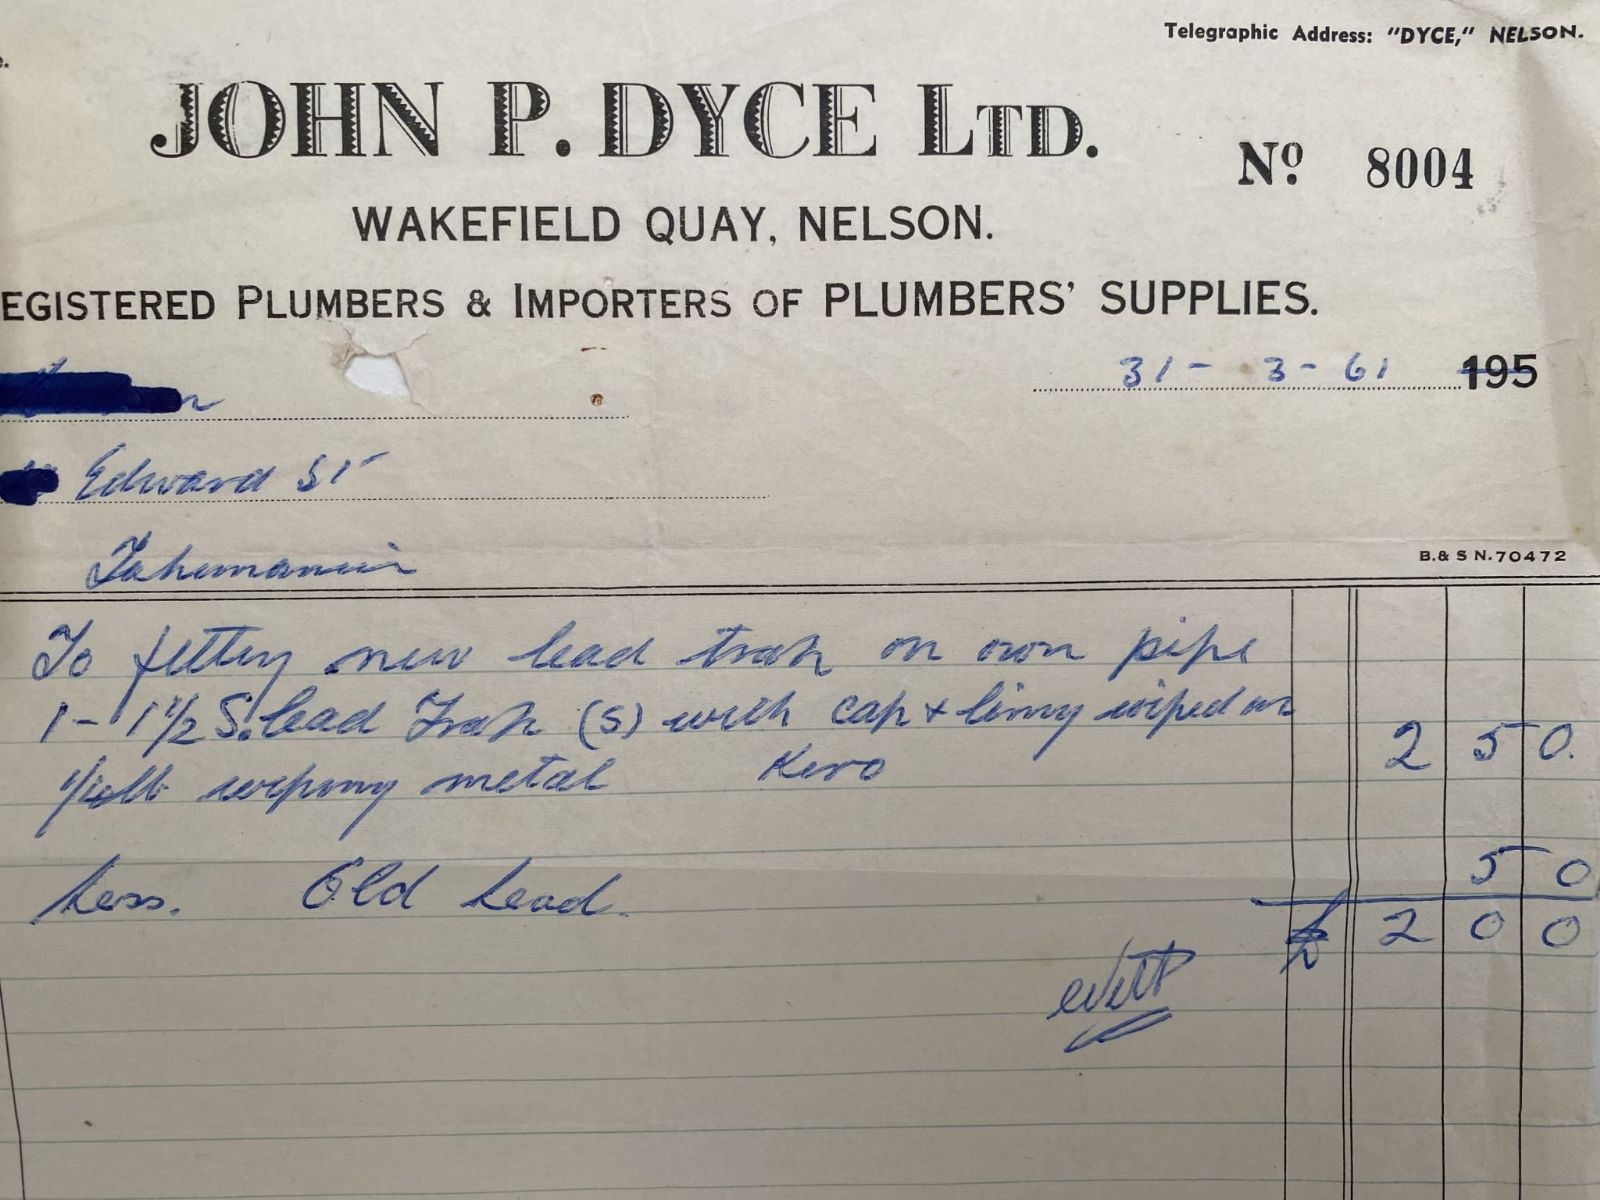 Telegraphic Address: "DYCE," NELSON.
e.
JOHN P. DYCE LTD.
Nº 8004
WAKEFIELD QUAY, NELSON.
EGISTERED PLUMBERS & IMPORTERS OF PLUMBERS' SUPPLIES.
31 - 3 - 61 195
Edward St
Tahunanui
B.& S N.70472
To fitting new lead trap on own pipe
1 - 1 1/2 S. lead Trap (S) with cap & lining wiped on
wiping metal Kero 2 5 0.
Less. Old Lead. 5 0
£ 2 0 0